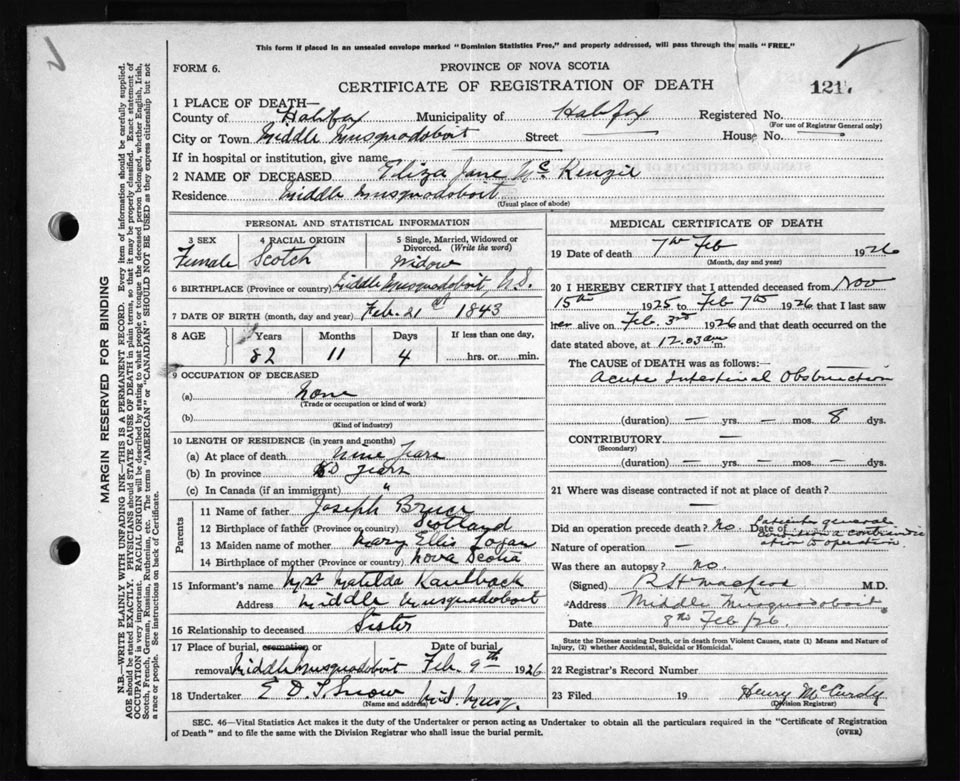 This form if placed in an unsealed envelope marked "Dominion Statistics Free," and properly addressed, will pass through the mails "FREE."
FORM 6.
PROVINCE OF NOVA SCOTIA
CERTIFICATE OF REGISTRATION OF DEATH
121
1 PLACE OF DEATH—
County of Halifax Municipality of Halifax Registered No.
(For use of Registrar General only)
City or Town Middle Musquodoboit Street — House No. —
If in hospital or institution, give name
2 NAME OF DECEASED Eliza Jane McKenzie
Residence Middle Musquodoboit
(Usual place of abode)
PERSONAL AND STATISTICAL INFORMATION
3 SEX
Female
4 RACIAL ORIGIN
Scotch
5 Single, Married, Widowed or Divorced. (Write the word)
Widow
6 BIRTHPLACE (Province or country) Middle Musquodoboit, N.S.
7 DATE OF BIRTH (month, day and year) Feb. 21st 1843
8 AGE
Years Months Days If less than one day,
82 11 4 hrs. or min.
9 OCCUPATION OF DECEASED
(a) None
(Trade or occupation or kind of work)
(b)
(Kind of industry)
10 LENGTH OF RESIDENCE (in years and months)
(a) At place of death nine years
(b) In province years
(c) In Canada (if an immigrant) "
Parents
11 Name of father Joseph Bruce
12 Birthplace of father (Province or country) Scotland
13 Maiden name of mother Mary Ellis Logan
14 Birthplace of mother (Province or country) Nova Scotia
15 Informant's name Mrs Matilda Kaulback
Address Middle Musquodoboit
16 Relationship to deceased Sister
17 Place of burial, cremation or removal Middle Musquodoboit Date of burial Feb. 9th 1926
18 Undertaker E D Snow Mid. Musq.
(Name and address)
MEDICAL CERTIFICATE OF DEATH
19 Date of death 7th Feb 1926
(Month, day and year)
20 I HEREBY CERTIFY that I attended deceased from Nov
15th 1925 to Feb 7th 1926 that I last saw
her alive on Feb. 3rd 1926 and that death occurred on
date stated above, at 12.03 am m.
The CAUSE of DEATH was as follows:
Acute Intestinal Obstruction
(duration) — yrs. — mos. 8 dys.
CONTRIBUTORY —
(Secondary)
(duration) — yrs. — mos. — dys.
21 Where was disease contracted if not at place of death? —
Did an operation precede death? No. Date of Patients general condition a contraindication to operation
Nature of operation —
Was there an autopsy? no.
(Signed) M.D.
Address Middle Musquodoboit
Date 8th Feb/26.
State the Disease causing Death, or in death from Violent Causes, state (1) Means and Nature of Injury, (2) whether Accidental, Suicidal or Homicidal.
22 Registrar's Record Number
23 Filed 19 Henry McCurdy
(Division Registrar)
SEC. 46—Vital Statistics Act makes it the duty of the Undertaker or person acting as Undertaker to obtain all the particulars required in the "Certificate of Registration
of Death" and to file the same with the Division Registrar who shall issue the burial permit.
(OVER)
MARGIN RESERVED FOR BINDING
N.B.—WRITE PLAINLY WITH UNFADING INK—THIS IS A PERMANENT RECORD. Every item of information should be carefully supplied.
AGE should be stated EXACTLY. PHYSICIANS should STATE CAUSE OF DEATH in plain terms, so that it may be properly classified. Exact statement of
OCCUPATION is very important. RACIAL ORIGIN will be described by stating to what people or tongue the deceased person belonged, whether English, Irish,
Scotch, French, German, Russian, Ruthenian, etc. The terms "AMERICAN" or "CANADIAN" SHOULD NOT BE USED as they express citizenship but not
a race or people. See instructions on back of Certificate.